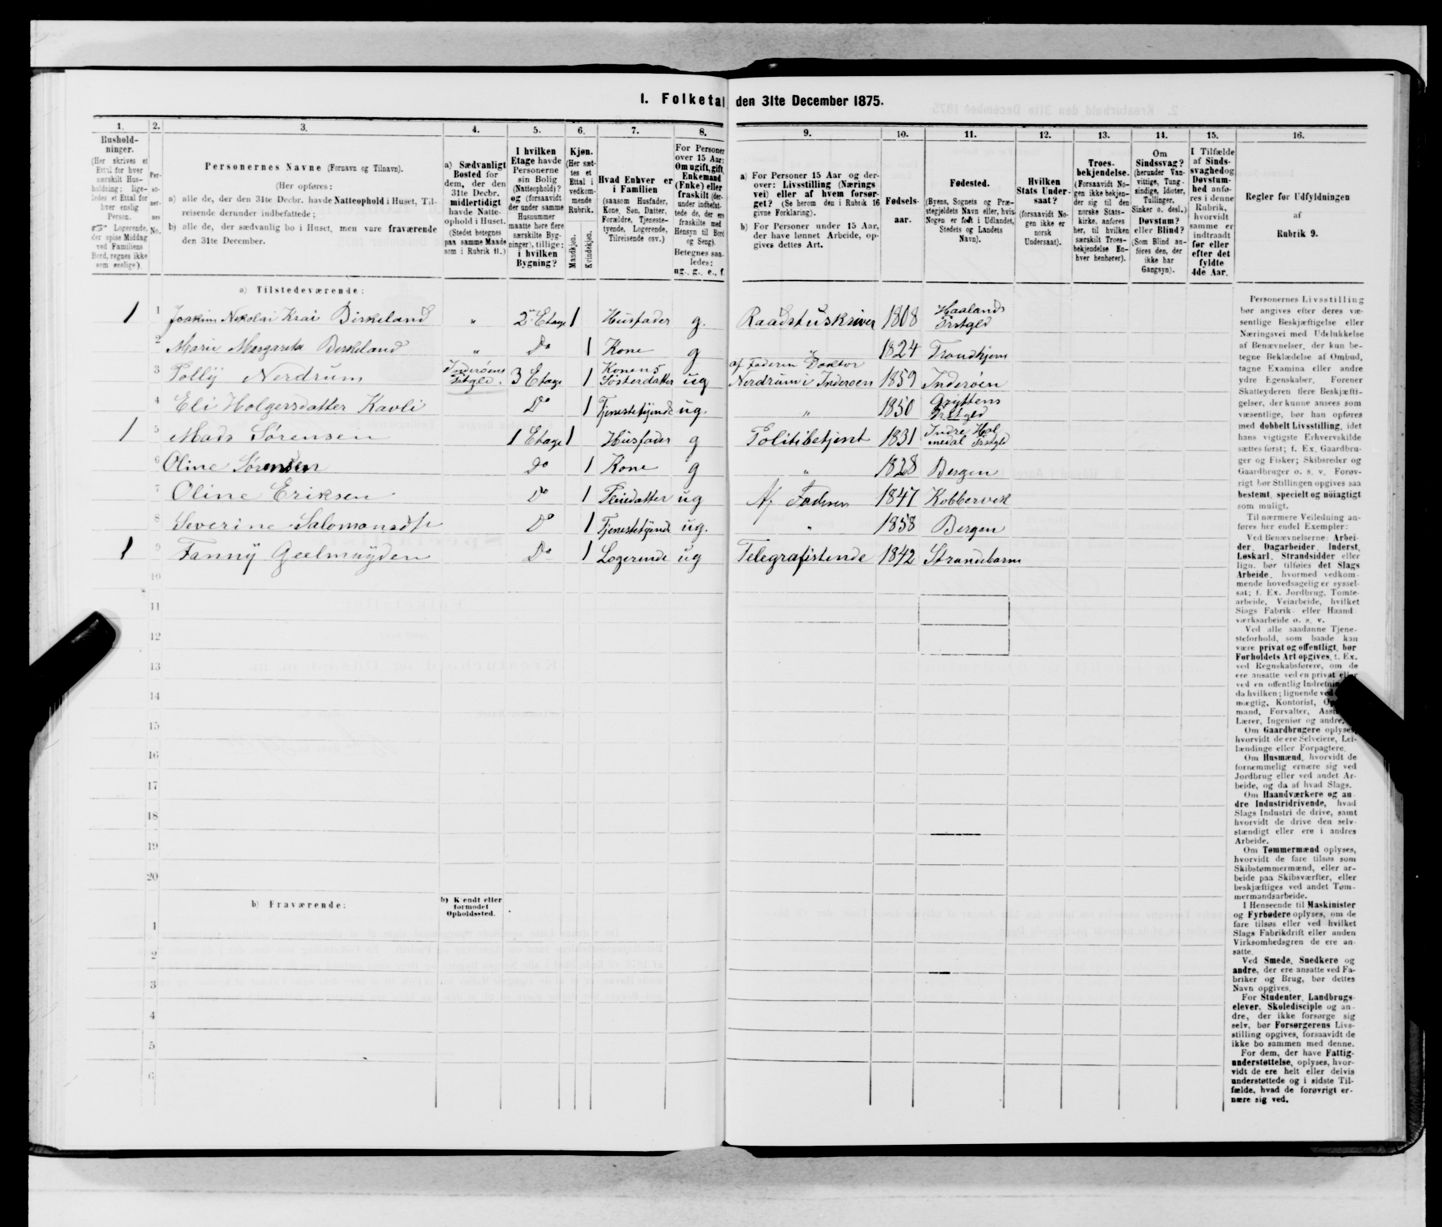 1. Folketal den 31te December 1875.
1.
2.
3.
4.
5.
6.
7.
8.
9.
10.
11.
12.
13.
14.
15.
16.
Hushold-
ninger.
(Her skrives et
Ettal for hver
særskilt Hus-
holdning; lige-
ledes et Ettal for
hver enslig
Person.
Logerende,
der spise Middag
ved Familiens
Bord, regnes ikke
som enslige).
Per-
so-
ner-
nes
No.
Personernes Navne (Fornavn og Tilnavn).
(Her opføres:
a) alle de, der den 31te Decbr. havde Natteophold i Huset, Til-
reisende derunder indbefattede;
b) alle de, der sædvanlig bo i Huset, men vare fraværende
den 31te December.
a) Sædvanligt
Bosted for
dem, der den
31te Decbr.
midlertidigt
havde Natte-
ophold i Huset.
(Stedet betegnes
paa samme Maade
som i Rubrik 11.)
I hvilken
Etage havde
Personerne
sin Bolig
(Natteophold)?
og (forsaavidt
der under samme
Husnummer
maatte høre flere
særskilte Byg-
ninger), tillige:
i hvilken
Bygning?
Kjøn.
(Her sæt-
tes et
Ettal i
vedkom-
mende
Rubrik.
Mandkjøn.
Kvindekjøn.
Hvad Enhver er
i Familien
(saasom Husfader,
Kone, Søn, Datter,
Forældre, Tjeneste-
tyende, Logerende,
Tilreisende osv.)
For Personer
over 15 Aar:
Om ugift, gift,
Enkemand
(Enke) eller
fraskilt (der-
under indbefat-
tede de, der ere
fraskilte med
Hensyn til Bord
og Seng).
Betegnes saa-
ledes:
ug., g., e., f.
a) For Personer 15 Aar og der-
over: Livsstilling (Nærings
vei) eller af hvem forsør-
get? (Se herom den i Rubrik 16
givne Forklaring).
b) For Personer under 15 Aar,
der have lønnet Arbeide, op-
gives dettes Art.
Fødsels-
aar.
Fødested.
(Byens, Sognets og Præ-
stegjeldets Navn eller, hvis
Nogen er født i Udlandet,
Stedets og Landets
Navn).
Hvilken
Stats Under-
saat?
(forsaavidt No-
gen ikke er
norsk
Undersaat).
Troes-
bekjendelse.
(Forsaavidt No-
gen ikke bekjen-
der sig til den
norske Stats-
kirke, anføres
her, til hvilken
særskilt Troes-
bekjendelse En-
hver henhører).
Om
Sindssvag?
(herunder Van-
vittige, Tung-
sindige, Idioter,
Sinker o. desl.)
Døvstum?
eller Blind?
(Som Blind an-
føres den, der
ikke har
Gangsyn).
I Tilfælde
af Sinds-
svaghed og
Døvstum-
hed anfø-
res i denne
Rubrik,
hvorvidt
samme er
indtraadt
før eller
efter det
fyldte
4de Aar.
Regler før Udfyldningen
af
Rubrik 9.
a) Tilstedeværende:
1 1 Joakim Nikolai Krai Birkeland " 2 Etage 1 Husfader g. Raadstuskriver 1808 Haalands Prstgld
2 Marie Margareta Birkeland " Do 1 Kone g " 1824 Trondhjem
3 Polly Nordrum Inderøens Prstgld. 3 Etage 1 Konens Søsterdatter ug af Faderen Doktor Nordrum i Inderøen 1859 Inderøen
4 Eli Holgersdatter Kavli Do 1 Tjenestetyende ug. " 1850 Gryttens Prstgld
1 5 Mads Sørensen 1 Etage 1 Husfader g Politibetjent 1831 Indre Hol medal Prstgld
6 Oline Sørensen Do 1 Kone g " 1828 Bergen
7 Oline Eriksen Do 1 Pleiedatter ug Af Faderen 1847 Kobbervik
8 Severine Salomonsdtr Do 1 Tjenestetyende ug. " 1858 Bergen
1 9 Fanny Geelmuyden Do 1 Logerende ug Telegrafistinde 1842 Strandebarm
10
11
12
13
14
15
16
17
18
19
20
b) Fraværende:
b) Kjendt eller
formodet
Opholdssted.
1
2
3
4
5
6
Personernes Livsstilling
bør angives efter deres væ-
sentlige Beskjæftigelse eller
Næringsvei med Udelukkelse
af Benævnelser, der kun be-
tegne Bekladelse af Ombud,
tagne Examina eller andre
ydre Egenskaber. Forener
Skatteyderen flere Beskjæfti-
gelser, der kunne ansees som
væsentlige, bør han opføres
med dobbelt Livsstilling, idet
hans vigtigste Erhvervskilde
sættes først; f. Ex. Gaardbru-
ger og Fisker; Skibsreder og
Gaardbruger o. s. v. Forøv-
rigt bør Stillingen opgives saa
bestemt, specielt og nøiagtigt
som muligt.
Til nærmere Veiledning an-
føres her endel Exempler:
Ved Benævnelserne: Arbei-
der, Dagarbeider, Inderst,
Løskarl, Strandsidder eller
lign. bør tilføies det Slags
Arbeide, hvormed vedkom-
mende hovedsagelig er syssel-
sat; f. Ex. Jordbrug, Tomte-
arbeide, Veiarbeide, hvilket
Slags Fabrik- eller Haand-
værksarbeide o. s. v.
Ved alle saadanne Tjene-
steforhold, som baade kan
være privat og offentligt, bør
Forholdets Art opgives, f. Ex.
ved Regnskabsførere, om de
ere ansatte ved en privat eller
ved en offentlig Indretning
da hvilken; lignende ved
mægtig, Kontorist,
mand, Forvalter,
Lærer, Ingeniør og andre.
Om Gaardbrugere oplyses,
hvorvidt de ere Selveiere, Lei-
lændinge eller Forpagtere.
Om Husmænd, hvorvidt de
fornemmelig ernære sig ved
Jordbrug eller ved andet Ar-
beide, og da af hvad Slags.
Om Haandværkere og an-
dre Industridrivende, hvad
Slags Industri de drive, samt
hvorvidt de drive den selv-
stændigt eller ere i andres
Arbeide.
Om Tømmermænd oplyses,
hvorvidt de fare tilsøs som
Skibstømmermænd, eller ar-
beide paa Skibsværfter, eller
beskjæftiges ved andet Tøm-
mermandsarbeide.
I Henseende til Maskinister
og Fyrbødere oplyses, om de
fare tilsøs eller ved hvilket
Slags Fabrikdrift eller anden
Virksomhedsgren de ere an-
satte.
Ved Smede, Snedkere og
andre, der ere ansatte ved Fa-
briker og Brug, bør dettes
Navn opgives.
For Studenter, Landbrugs-
elever, Skoledisciple og an-
dre, der ikke forsørge sig
selv, bør Forsørgerens Livs-
stilling opgives, forsaavidt de
ikke bo sammen med denne.
For dem, der have Fattig-
understøttelse, oplyses, hvor-
vidt de ere helt eller delvis
understøttede og i sidste Til-
fælde, hvad de forøvrigt er-
nære sig ved.